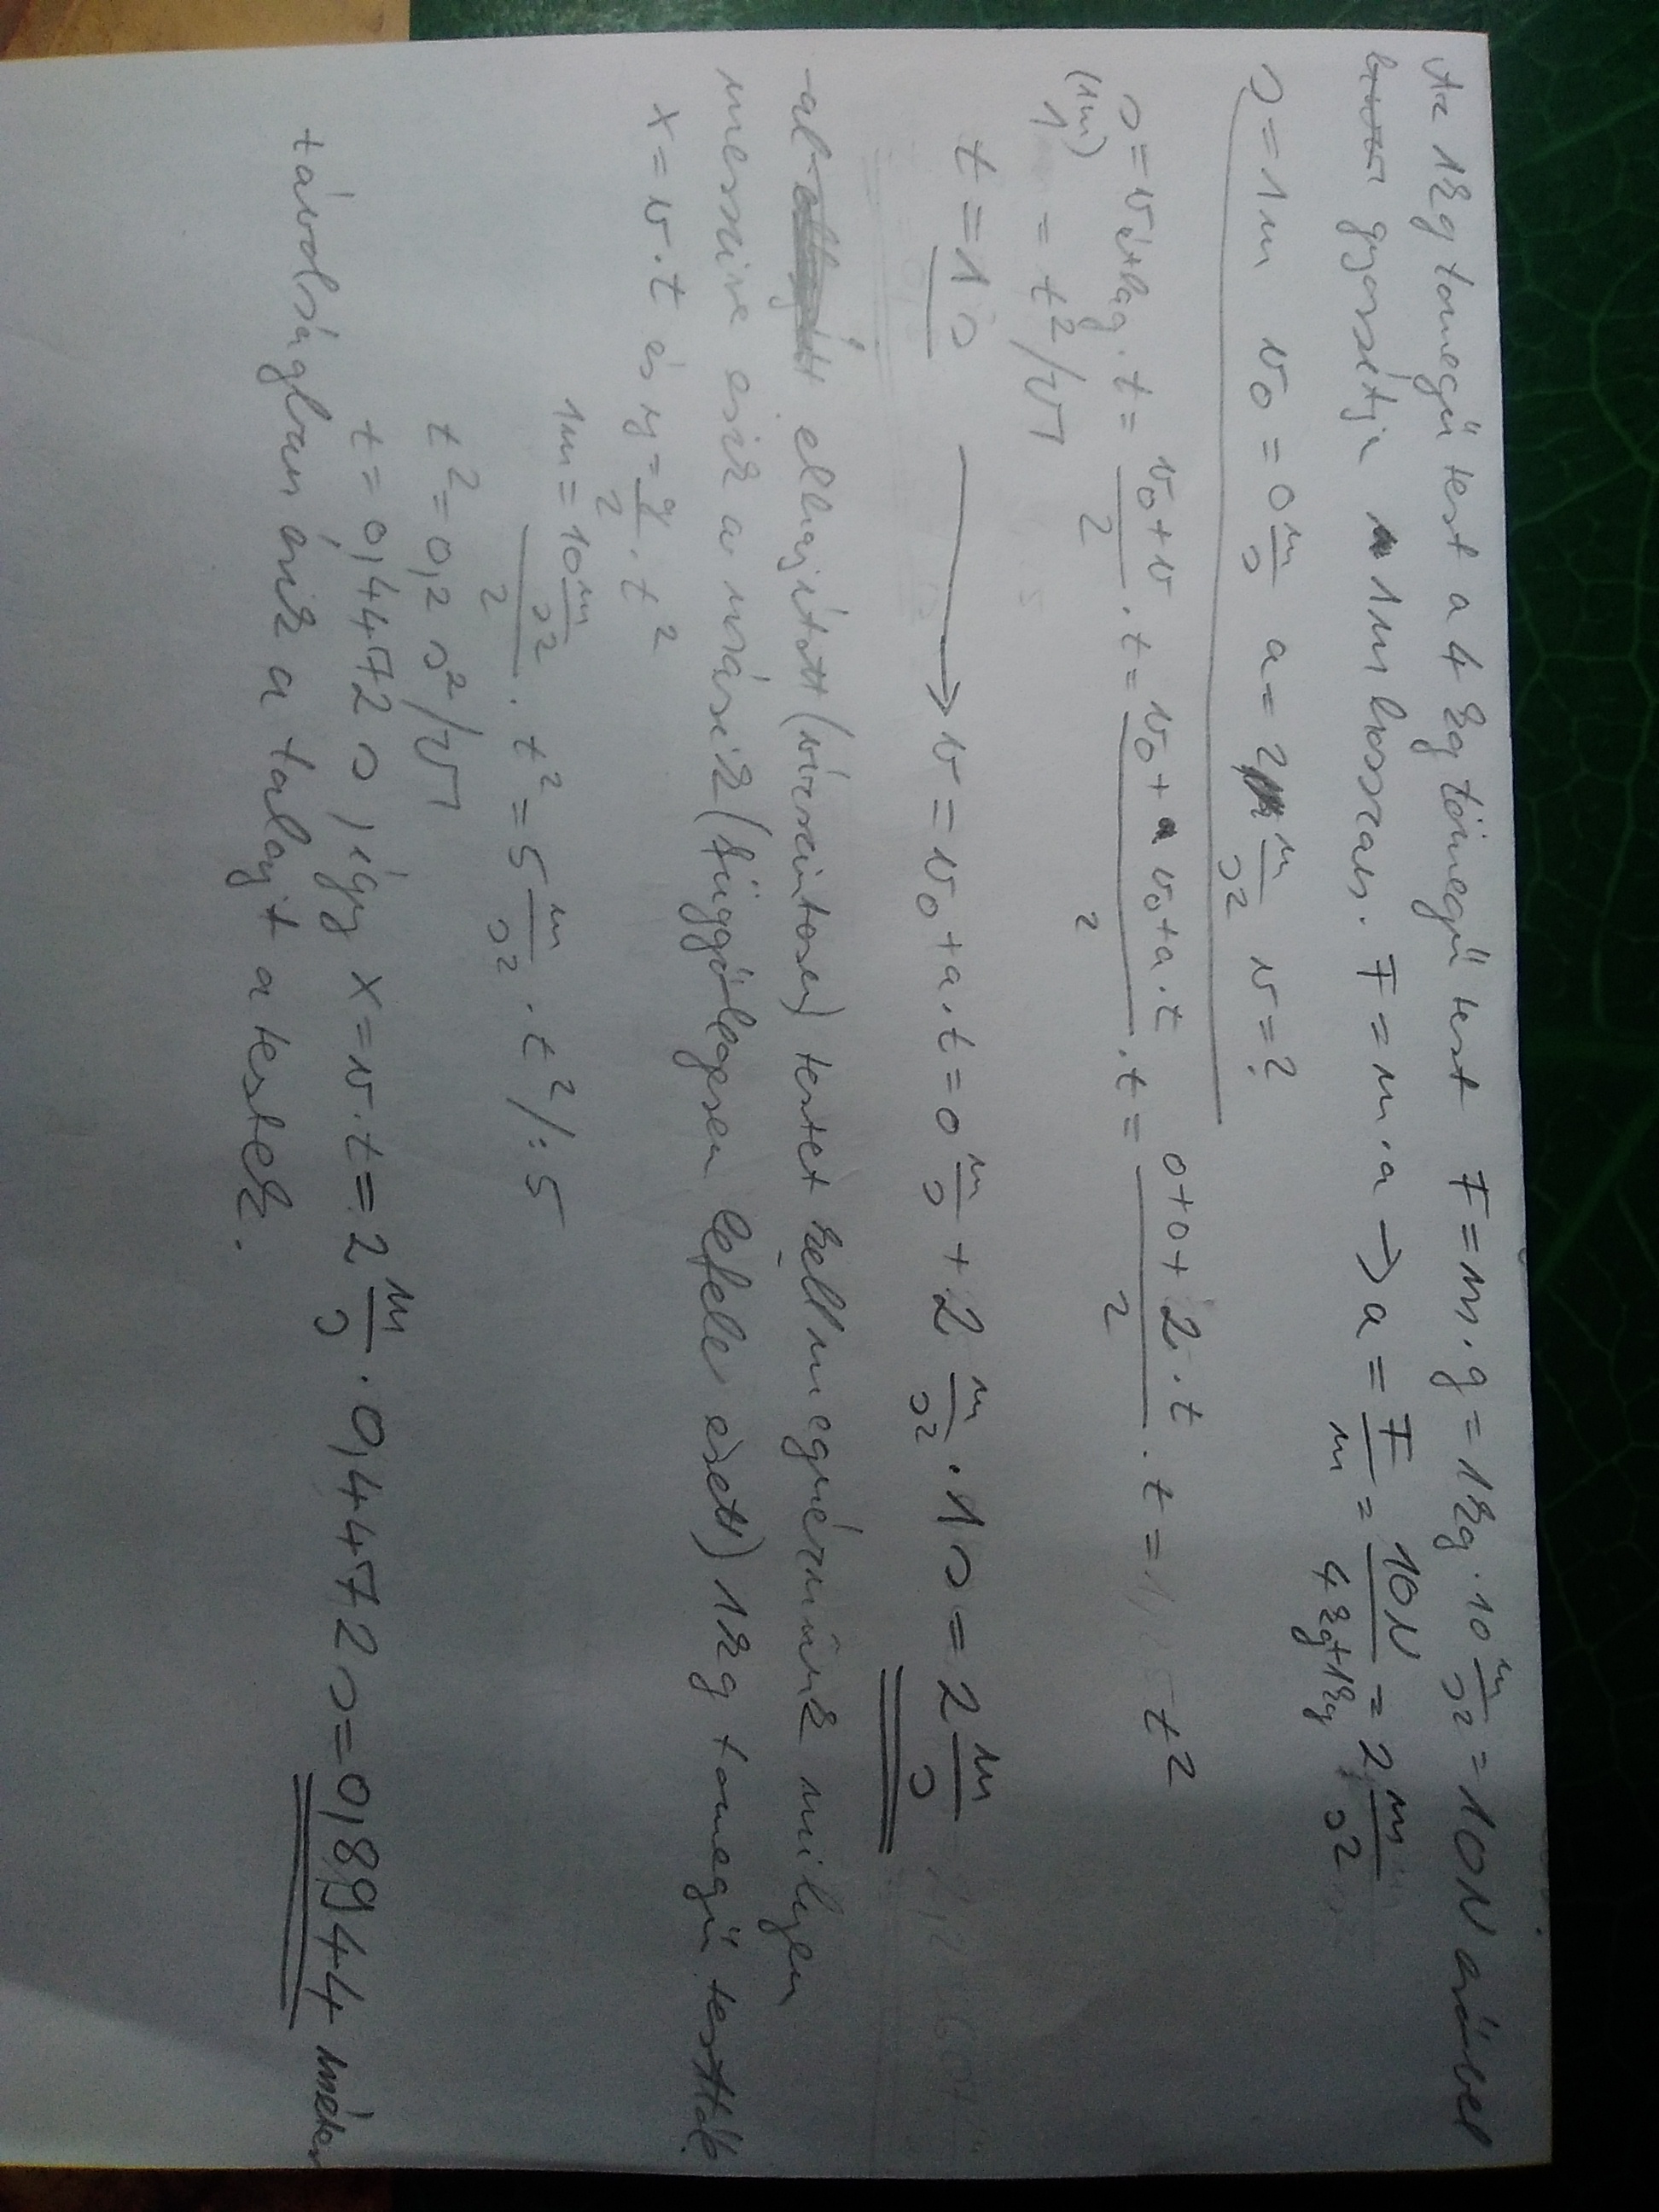 Az 1kg tömegű test a 4 kg tömegű test F = m · g = 1kg · 10 m/s² = 10N erővel
gyorsítja 1m hosszan. F = m · a → a = F/m = 10N/4kg+1kg = 2 m/s²
s = 1m v₀ = 0 m/s a = 2 m/s² v = ?
s = v átlag · t = v₀+v/2 · t = v₀ + v₀+a·t/2 · t = 0+0+2·t/2 · t = t²
(1m)
1 = t² /√
t = 1 s → v = v₀ + a · t = 0 m/s + 2 m/s² · 1 s = 2 m/s
elhajított (vízszintesen) testet kell megnéznünk milyen
messzire esik a másik (függőlegesen lefele esett) 1kg tömegű testtől.
x = v · t és y = g/2 · t²
1m = 10 m/s²/2 · t² = 5 m/s² · t² /: 5
t² = 0,2 s² /√
t = 0,4472 s, így x = v · t = 2 m/s · 0,4472 s = 0,8944 méter
távolságban érik a talajt a testek.